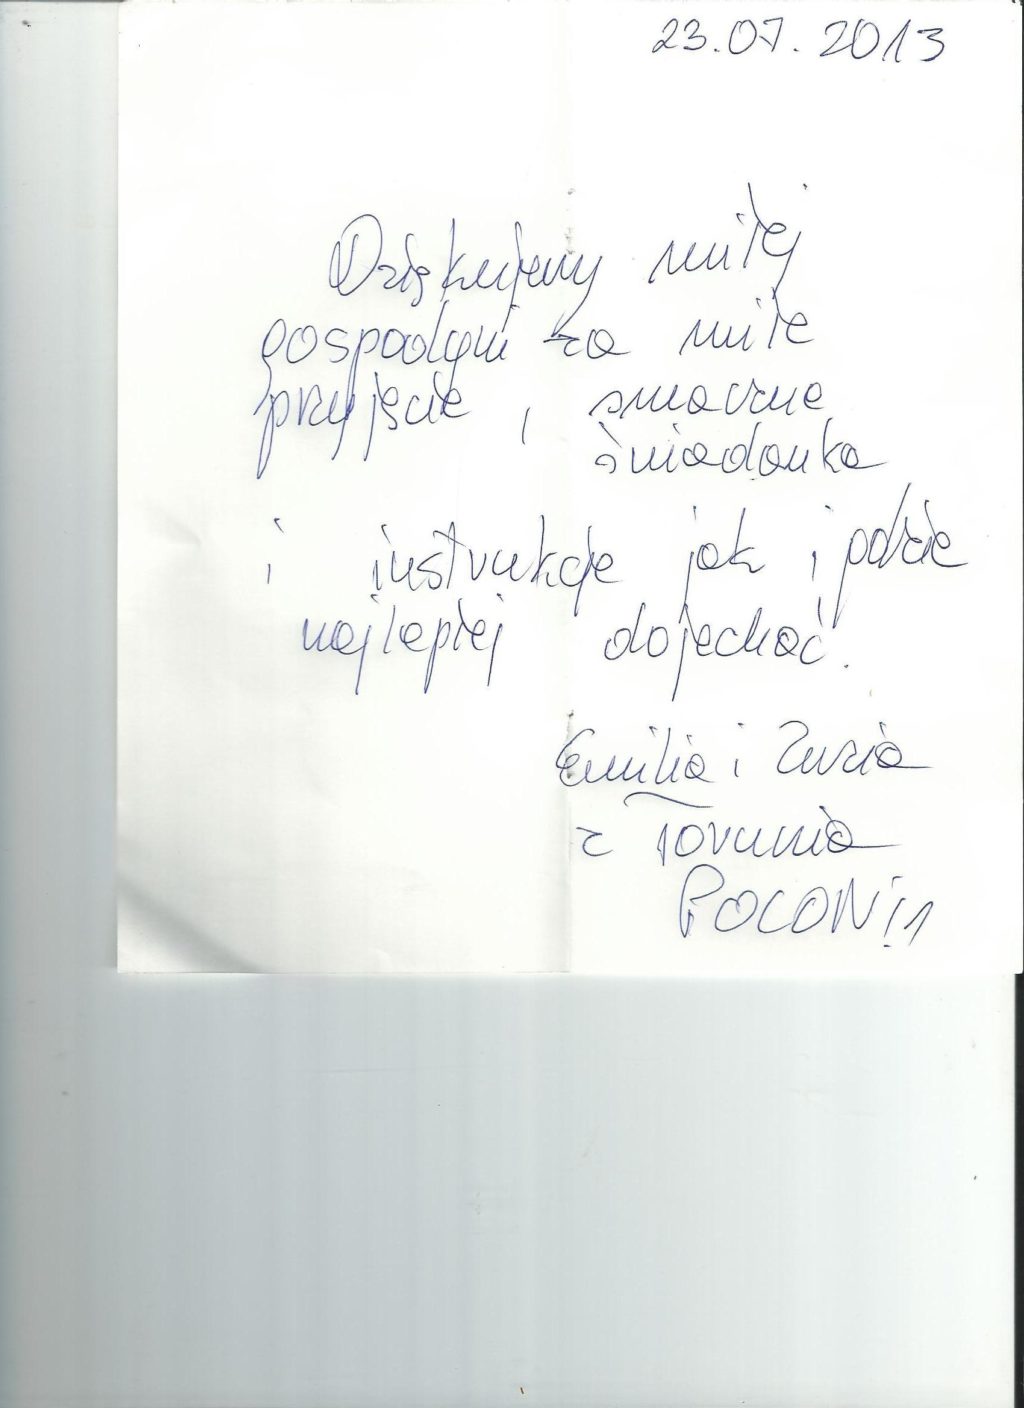 23.07.2013
Dziękujemy miłej
gospodyni za miłe
przyjęcie, smaczne
śniadanka
i instrukcje jak i gdzie
najlepiej dojechać.
Emilia i Zuzia
z Torunia